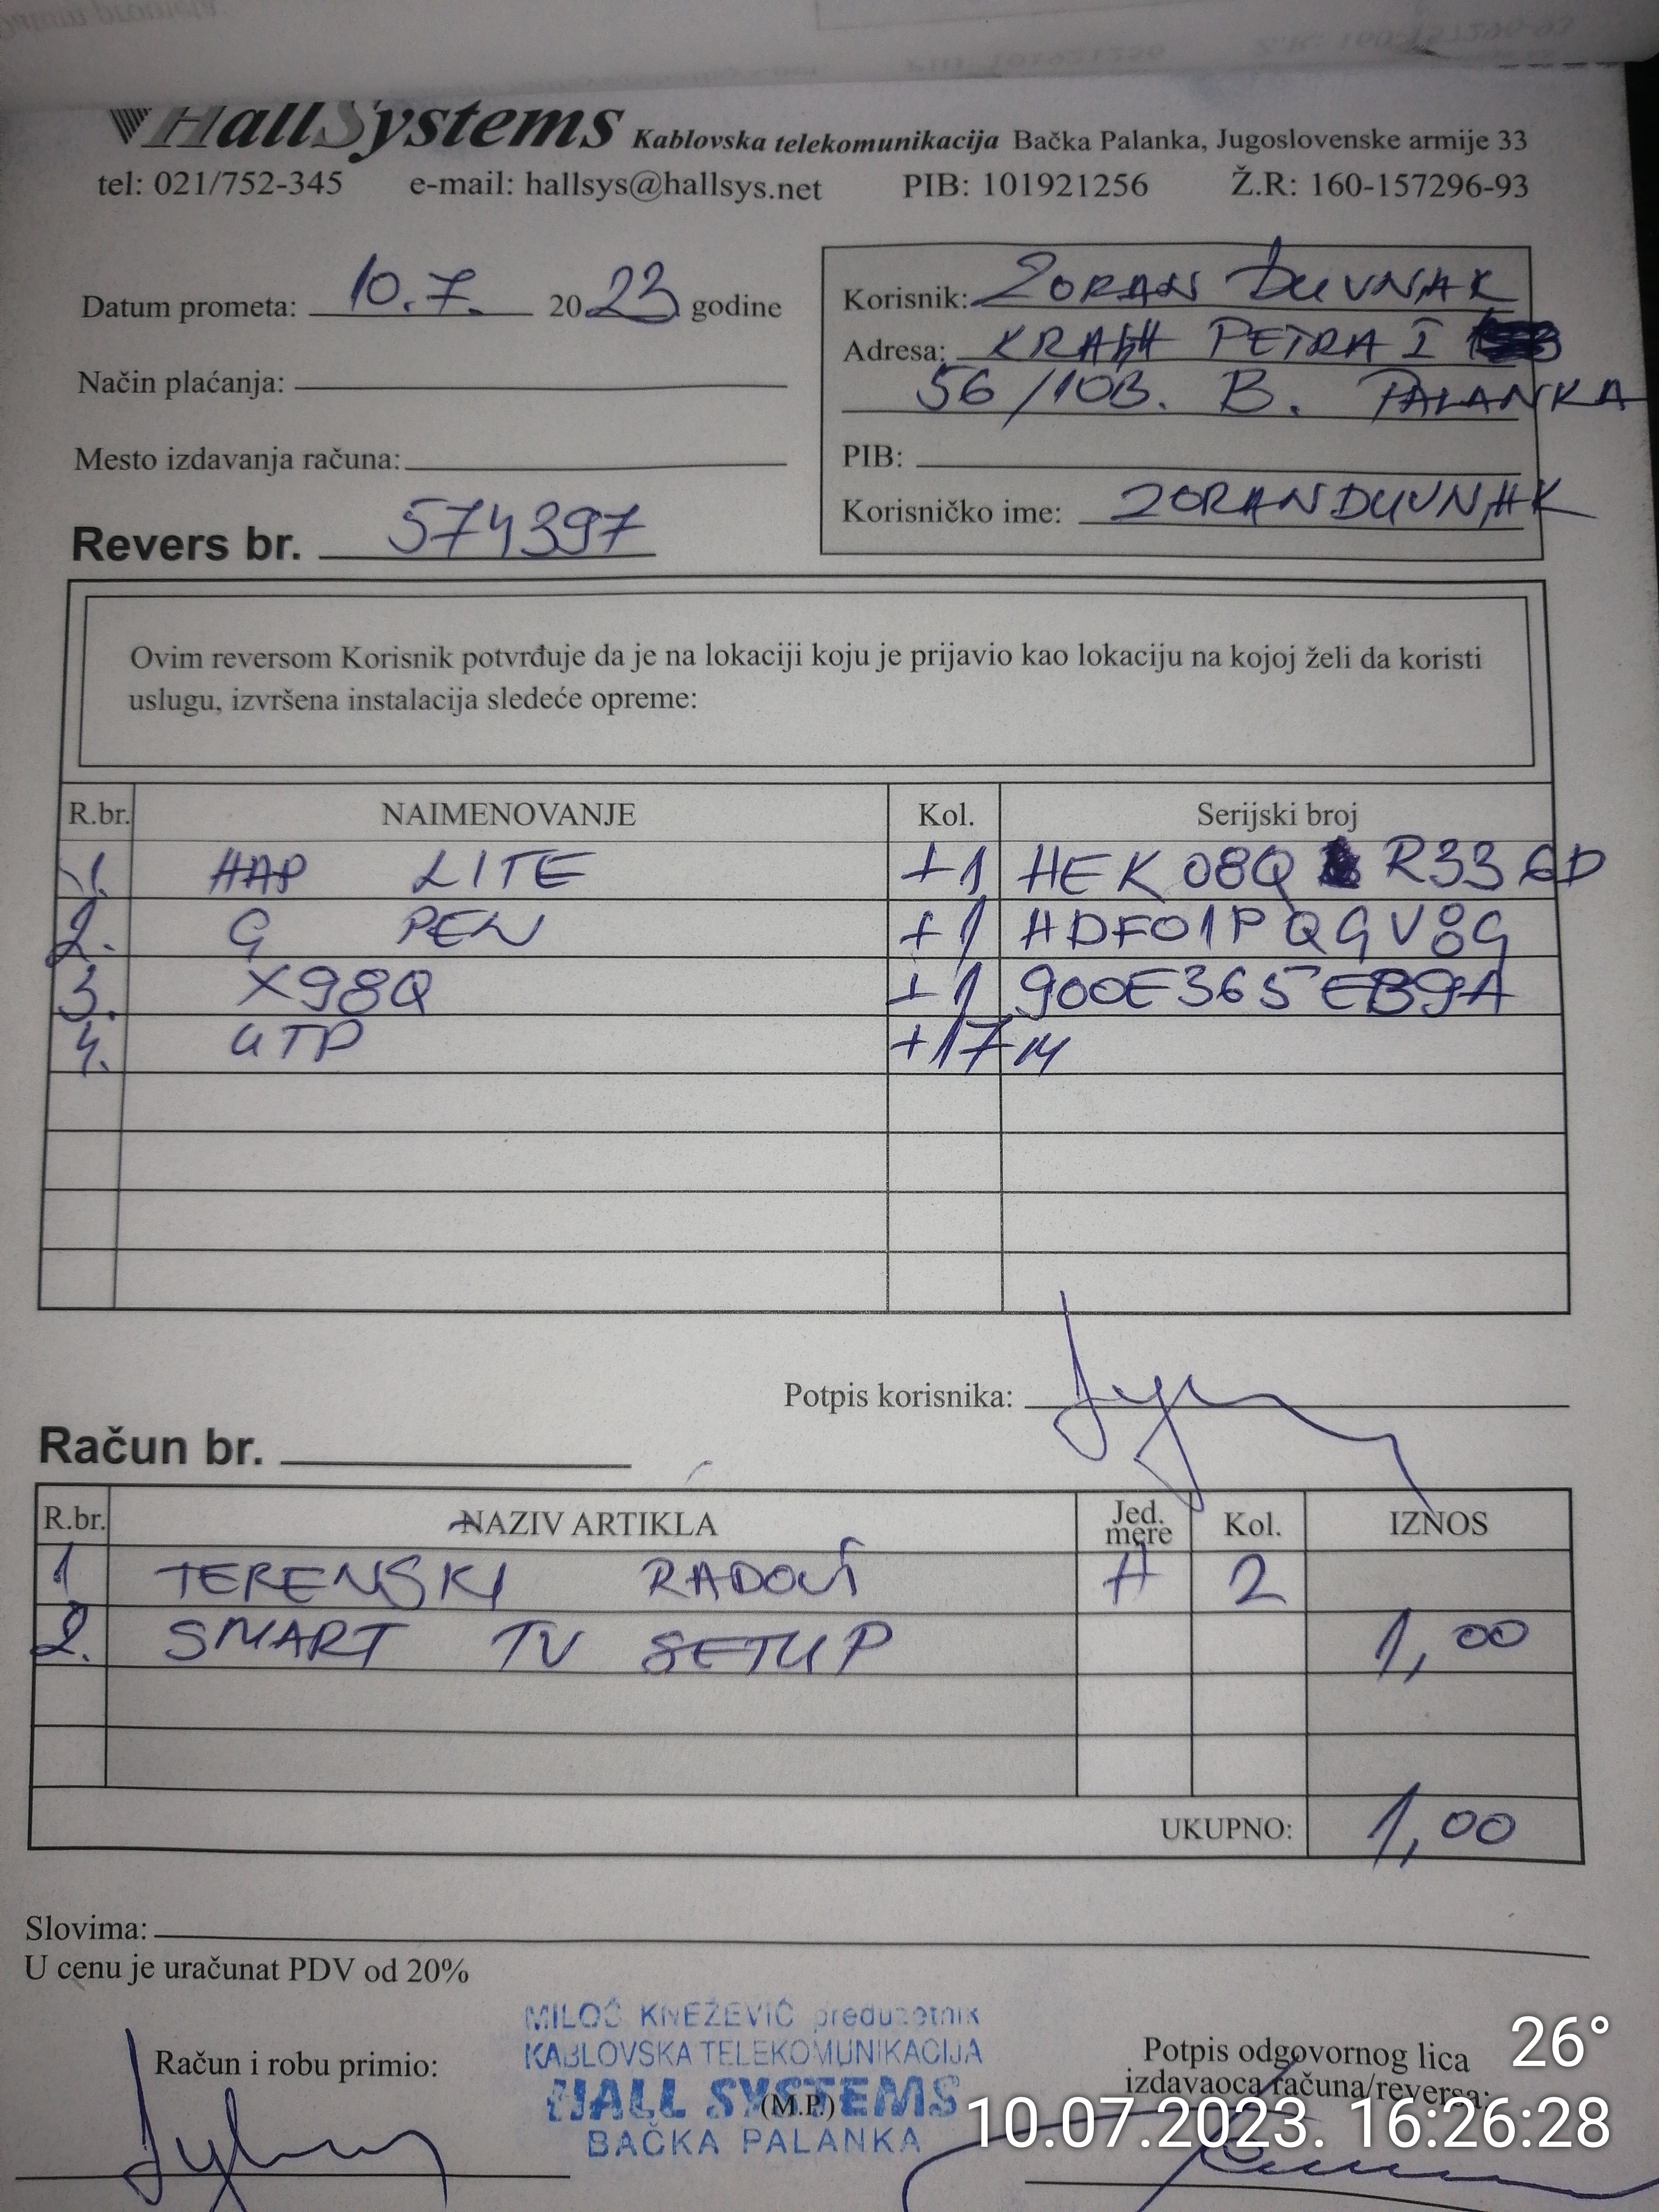 HallSystems Kablovska telekomunikacija Bačka Palanka, Jugoslovenske armije 33
tel: 021/752-345 e-mail: hallsys@hallsys.net PIB: 101921256 Ž.R: 160-157296-93
Datum prometa: 10.7. 2023 godine
Način plaćanja:
Mesto izdavanja računa:
Revers br. 574397
Korisnik: ZORAN DUVNJAK
Adresa: KRALJA PETRA I
56/10B. B. PALANKA
PIB:
Korisničko ime: ZORANDUVNJAK
Ovim reversom Korisnik potvrđuje da je na lokaciji koju je prijavio kao lokaciju na kojoj želi da koristi
uslugu, izvršena instalacija sledeće opreme:
R.br. NAIMENOVANJE Kol. Serijski broj
1. HAP LITE +1 HEK08Q R336D
2. G PEN +1 HDF01PQGV8G
3. X98Q +1 900E365EB9A
4. UTP +17M
Potpis korisnika:
Račun br.
R.br. NAZIV ARTIKLA Jed. mere Kol. IZNOS
1 TERENSKI RADOVI H 2
2. SMART TV SETUP 1,00
UKUPNO: 1,00
Slovima:
U cenu je uračunat PDV od 20%
MILOŠ KNEŽEVIĆ preduzetnik
KABLOVSKA TELEKOMUNIKACIJA
HALL SYSTEMS
(M.P.)
BAČKA PALANKA
Račun i robu primio:
Potpis odgovornog lica
izdavaoca računa/reversa:
26°
10.07.2023. 16:26:28